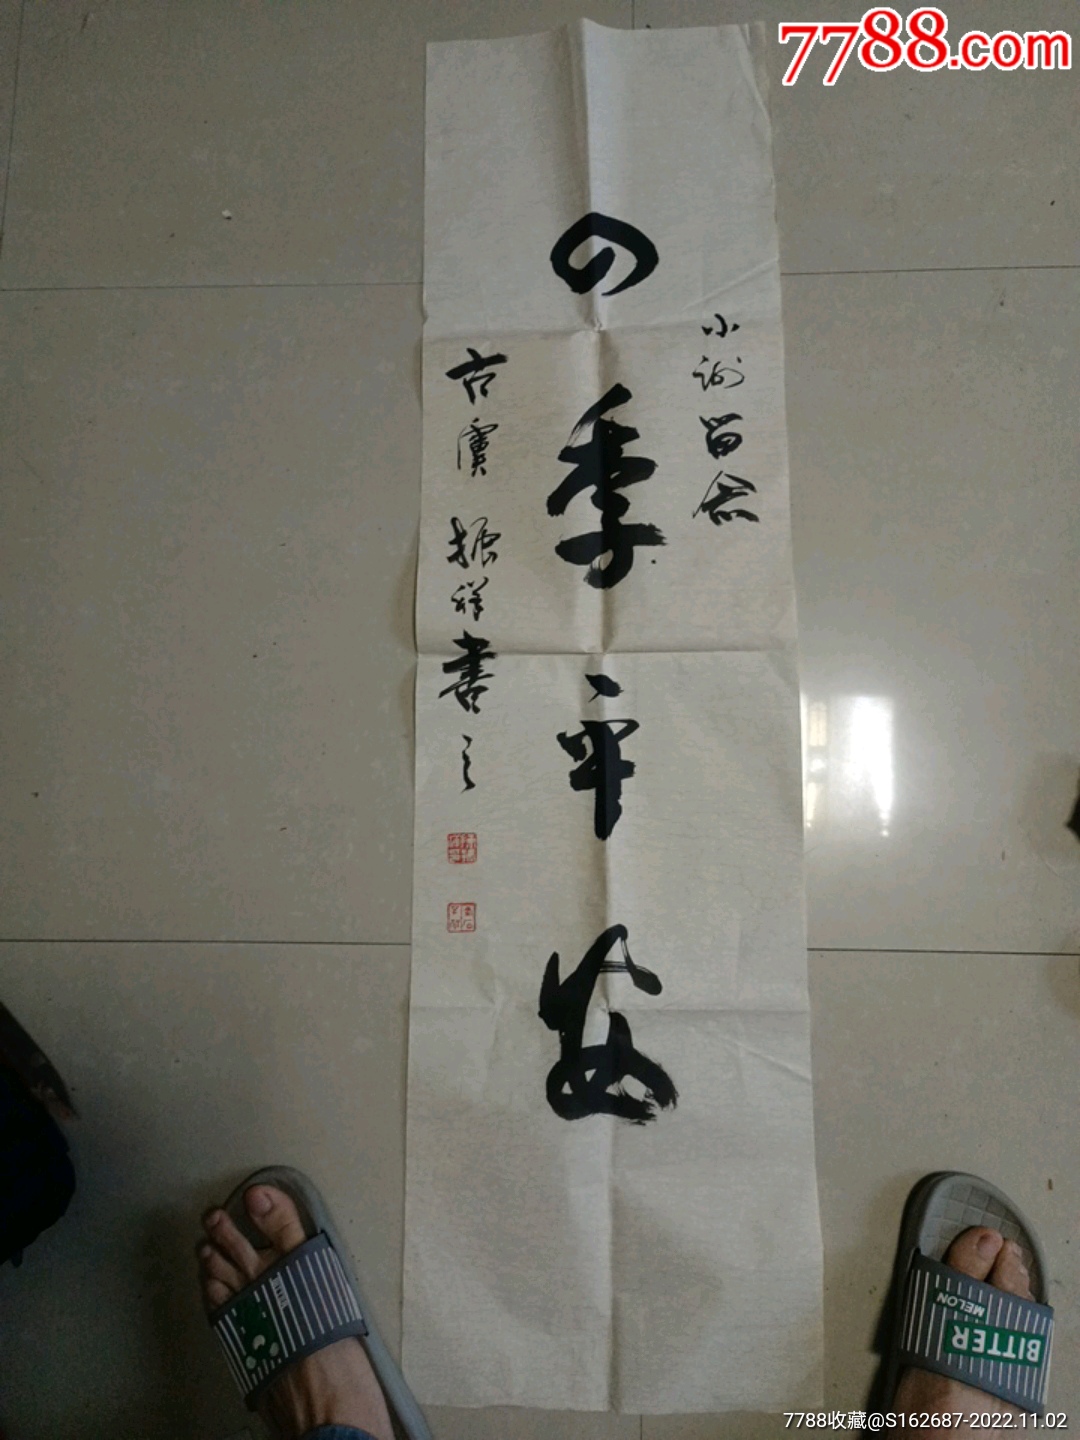 7788.com
小谢留念
四季平安
古虞振祥书之
MELON
BITTER
7788收藏@S162687-2022.11.02